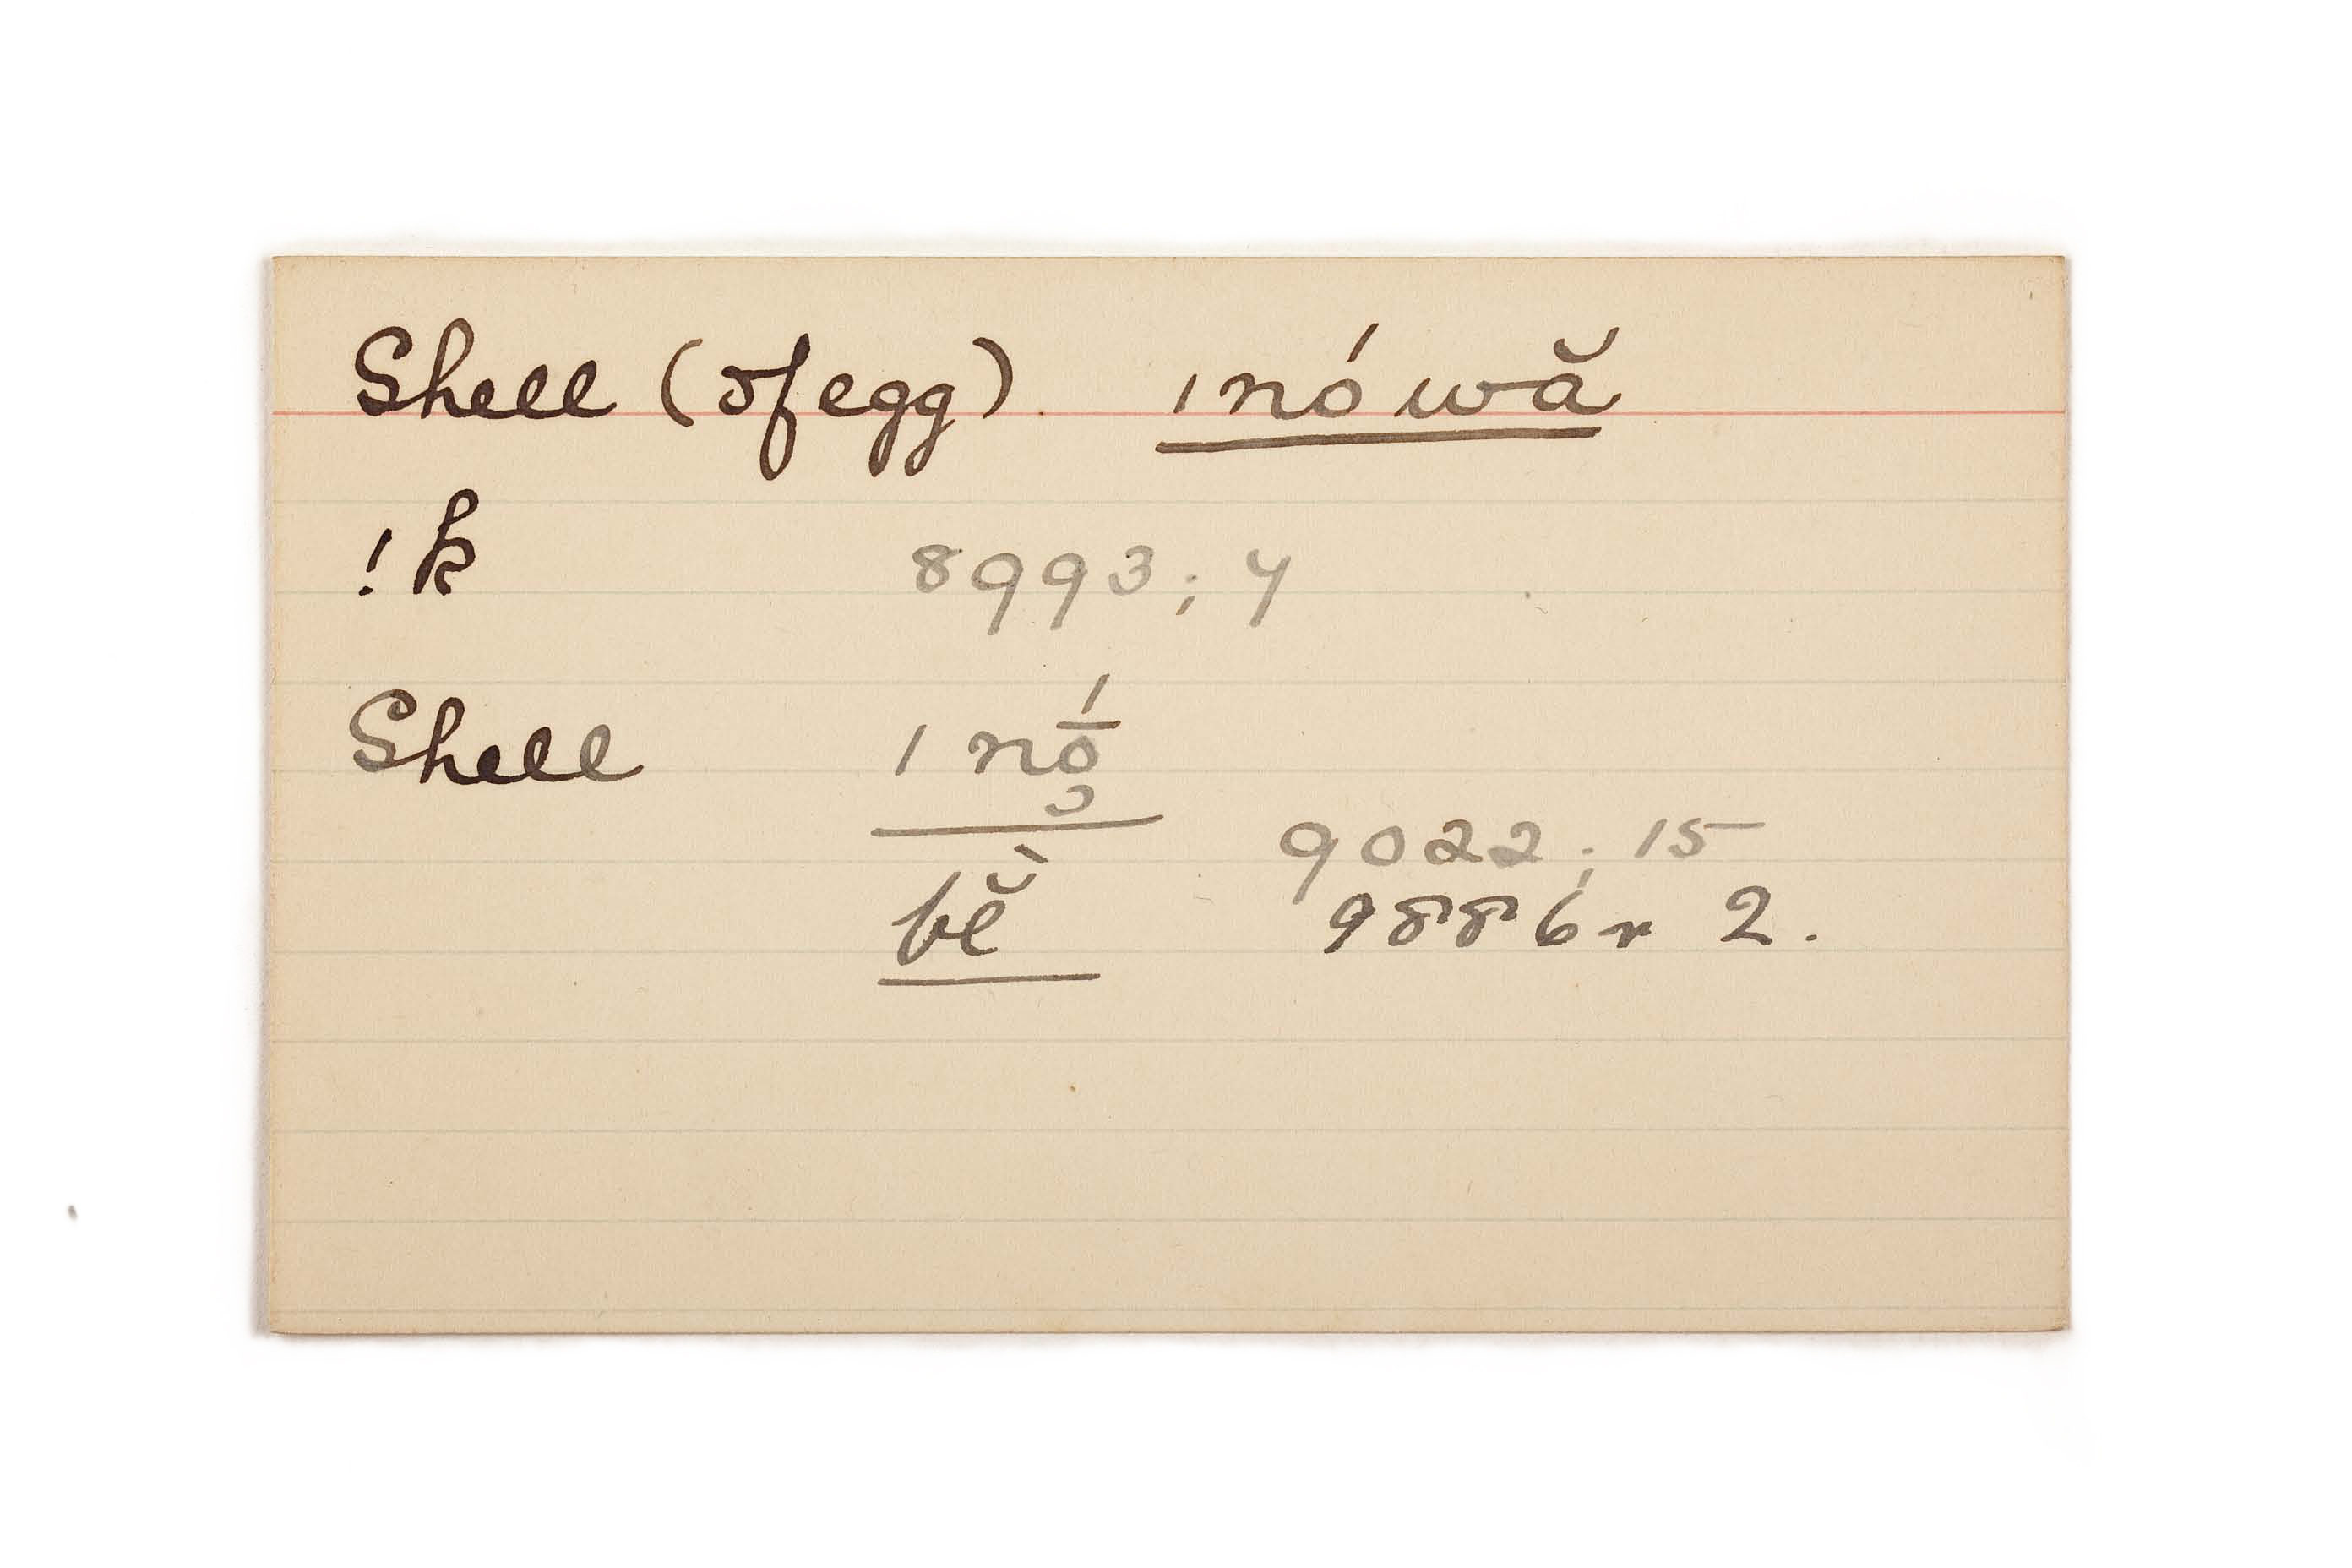 Shell (of egg). ı nó wă
!k̄ 8993; 4
Shell ı nṓ̮
9022; 15
bĕ̀ 9886 r 2.